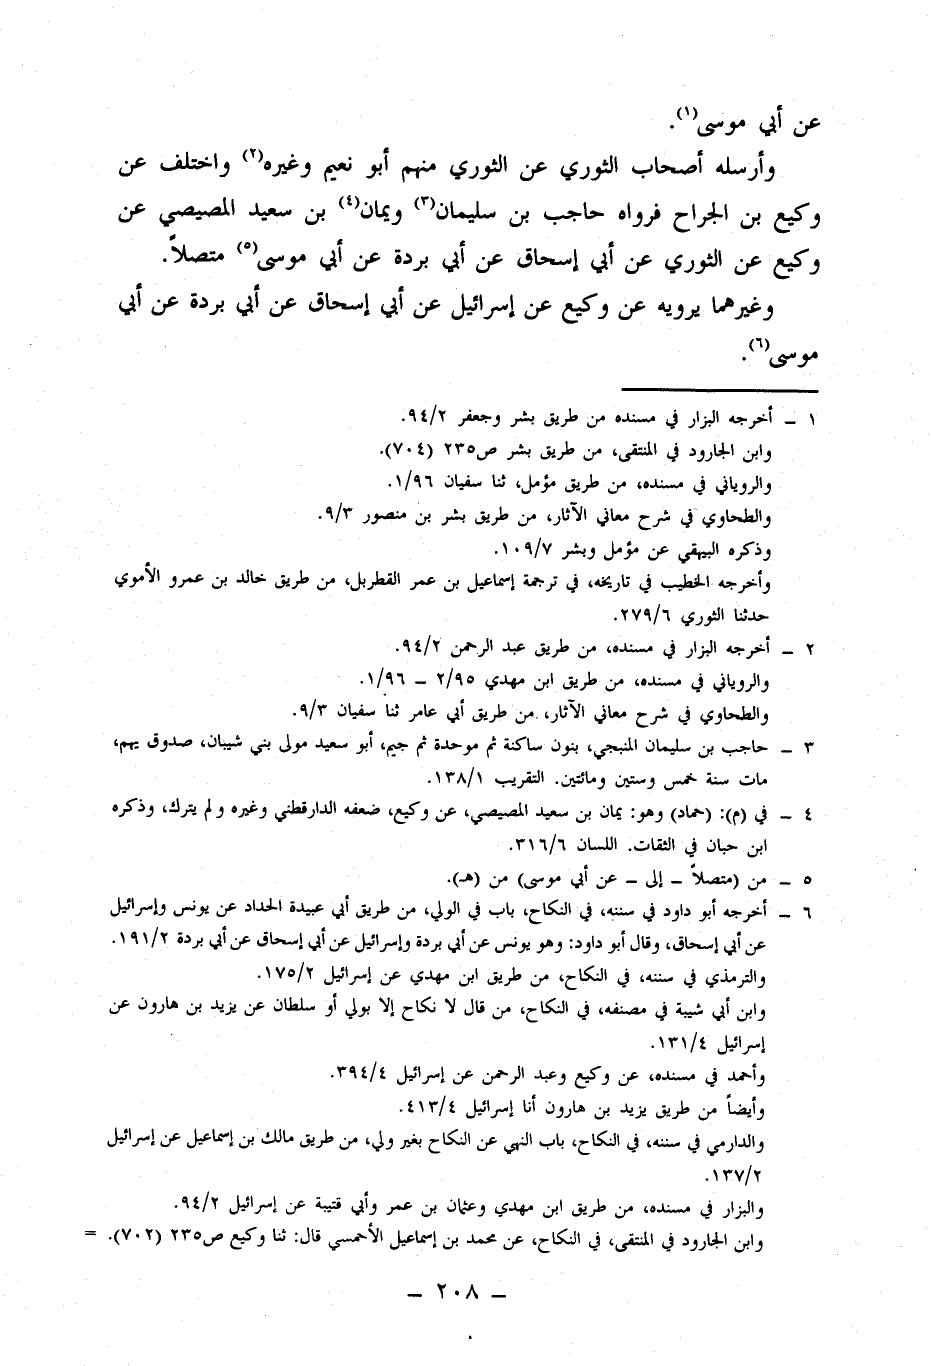 عن أبي موسى(١).
وأرسله أصحاب الثوري عن الثوري منهم أبو نعيم وغيره(٢) واختلف عن
وكيع بن الجراح فرواه حاجب بن سليمان(٣) ويمان(٤) بن سعيد المصيصي عن
وكيع عن الثوري عن أبي إسحاق عن أبي بردة عن أبي موسى(٥) متصلاً.
وغيرهما يرويه عن وكيع عن إسرائيل عن أبي إسحاق عن أبي بردة عن أبي
موسى(٦).
١ ـ أخرجه البزار في مسنده من طريق بشر وجعفر ٩٤/٢.
وابن الجارود في المنتقى، من طريق بشر ص٢٣٥ (٧٠٤).
والروياني في مسنده، من طريق مؤمل، ثنا سفيان ١/٩٦.
والطحاوي في شرح معاني الآثار، من طريق بشر بن منصور ٩/٣.
وذكره البيهقي عن مؤمل وبشر ١٠٩/٧.
وأخرجه الخطيب في تاريخه، في ترجمة إسماعيل بن عمر القطربل، من طريق خالد بن عمرو الأموي
حدثنا الثوري ٢٧٩/٦.
٢ ـ أخرجه البزار في مسنده، من طريق عبد الرحمن ٩٤/٢.
والروياني في مسنده، من طريق ابن مهدي ٢/٩٥ ـ ١/٩٦.
والطحاوي في شرح معاني الآثار، من طريق أبي عامر ثنا سفيان ٩/٣.
٣ ـ حاجب بن سليمان المنبجي، بنون ساكنة ثم موحدة ثم جيم، أبو سعيد مولى بني شيبان، صدوق يهم،
مات سنة خمس وستين ومائتين. التقريب ١٣٨/١.
٤ ـ في (م): (حماد) وهو: يمان بن سعيد المصيصي، عن وكيع، ضعفه الدارقطني وغيره ولم يترك، وذكره
ابن حبان في الثقات. اللسان ٣١٦/٦.
٥ ـ من (متصلاً ـ إلى ـ عن أبي موسى) من (هـ).
٦ ـ أخرجه أبو داود في سننه، في النكاح، باب في الولي، من طريق أبي عبيدة الحداد عن يونس وإسرائيل
عن أبي إسحاق، وقال أبو داود: وهو يونس عن أبي بردة وإسرائيل عن أبي إسحاق عن أبي بردة ١٩١/٢.
والترمذي في سننه، في النكاح، من طريق ابن مهدي عن إسرائيل ١٧٥/٢.
وابن أبي شيبة في مصنفه، في النكاح، من قال لا نكاح إلا بولي أو سلطان عن يزيد بن هارون عن
إسرائيل ١٣١/٤.
وأحمد في مسنده، عن وكيع وعبد الرحمن عن إسرائيل ٣٩٤/٤.
وأيضاً من طريق يزيد بن هارون أنا إسرائيل ٤١٣/٤.
والدارمي في سننه، في النكاح، باب النهي عن النكاح بغير ولي، من طريق مالك بن إسماعيل عن إسرائيل
١٣٧/٢.
والبزار في مسنده، من طريق ابن مهدي وعثمان بن عمر وأبي قتيبة عن إسرائيل ٩٤/٢.
وابن الجارود في المنتقى، في النكاح، عن محمد بن إسماعيل الأحمسي قال: ثنا وكيع ص٢٣٥ (٧٠٢). =
ـ ٢٠٨ ـ